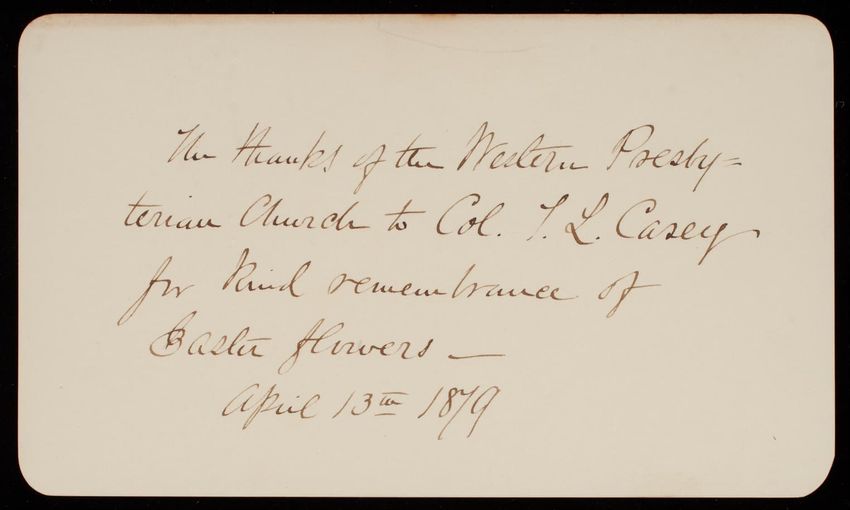 The thanks of the Western Presby=
terian Church to Col. T. L. Casey
for kind remembrance of
Easter flowers —
April 13th 1879